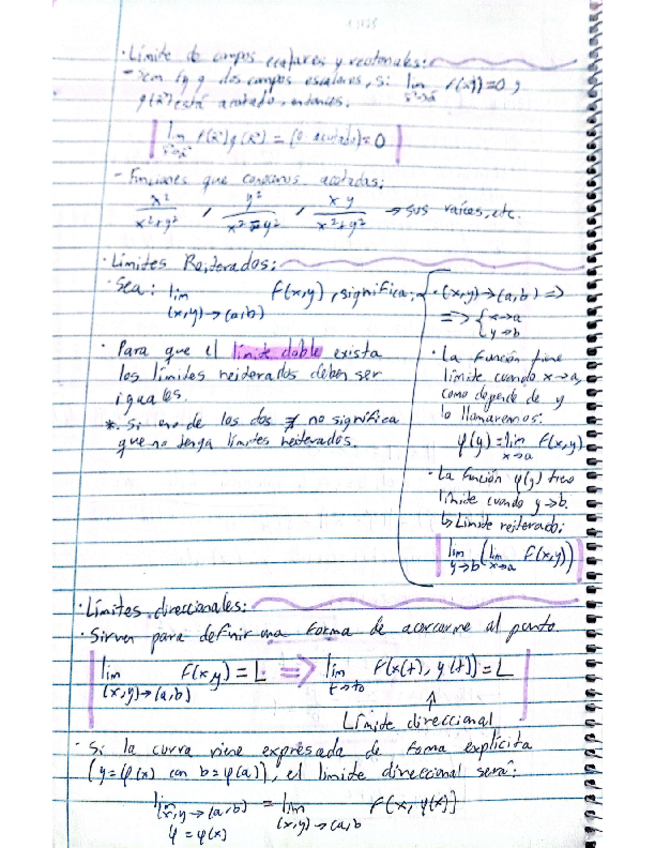 · Límite de campos escalares y vectoriales:
- Sean f y g dos campos escalares, si lim f(x⃗)=0 y
x⃗→a⃗
g(x⃗) está acotado, entonces.
lim f(x⃗)g(x⃗) = (0 · acotado) = 0
x⃗→a⃗
- Funciones que conocemos acotadas:
x²/(x²+y²) , y²/(x²+y²) , xy/(x²+y²) → sus raíces, etc.
· Límites Reiterados:
· Sea: lim F(x,y), significa:
(x,y)→(a,b)
· Para que el límite doble exista
los límites reiterados deben ser
iguales.
*. Si uno de los dos ∄ no significa
que no tenga límites reiterados.
· (x,y)→(a,b) =>
=> { x→a
y→b
· La función tiene
límite cuando x→a,
como depende de y
lo llamaremos:
φ(y) = lim F(x,y)
x→a
· La función φ(y) tiene
límite cuando y→b.
↳ Límite reiterado:
lim (lim F(x,y))
y→b x→a
· Límites direccionales:
· Sirven para definir una forma de acercarme al punto.
lim F(x,y) = L => lim F(x(t), y(t)) = L
(x,y)→(a,b) t→t₀
↑
Límite direccional
· Si la curva viene expresada de forma explícita
(y=φ(x) con b=φ(a)), el límite direccional será:
lim = lim F(x, φ(x))
(x,y)→(a,b) (x,y)→(a,b
φ = φ(x)